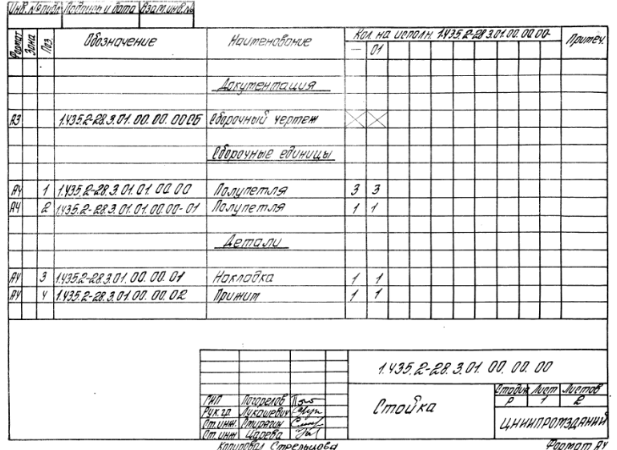 Инв. № подл. Подпись и дата Взам. инв. №
Формат Зона Поз. Обозначение Наименование Кол. на исполн. 1.435.2-28.3.01.00.00.00- Примеч.
— 01
Документация
А3 1.435.2-28.3.01.00.00.00СБ Сборочный чертеж
Сборочные единицы
А4 1 1.435.2-28.3.01.01.00.00 Полупетля 3 3
А4 2 1.435.2-28.3.01.01.00.00-01 Полупетля 1 1
Детали
А4 3 1.435.2-28.3.01.00.00.01 Накладка 1 1
А4 4 1.435.2-28.3.01.00.00.02 Прижим 1 1
1.435.2-28.3.01.00.00.00
Стойка
Стадия Лист Листов
Р 1 2
ГИП Погорелов
Рук.гр. Лукашевич
Ст.инж.
Ст.инж Царева
ЦНИИПРОМЗДАНИЙ
Копировал Стрельцова Формат А4